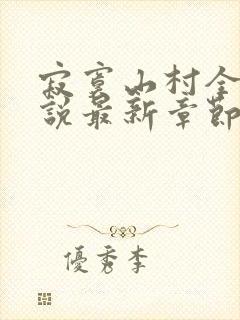 寂寞山村全
說最新章節
優秀李